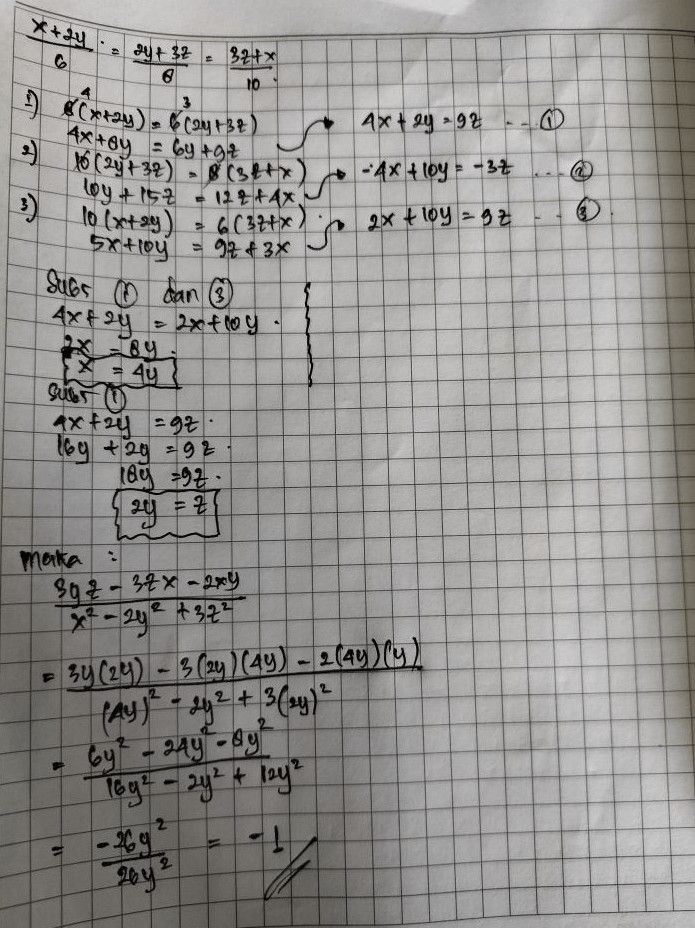 x+2y/6 = 2y+3z/8 = 3z+x/10
1) 8(x+2y) = 6(2y+3z)
4 3
4x+8y = 6y+9z → 4x+2y=9z ... ①
2) 10(2y+3z) = 8(3z+x)
10y+15z = 12z+4x → -4x+10y=-3z ... ②
3) 10(x+2y) = 6(3z+x)
5x+10y = 9z+3x → 2x+10y=9z ... ③
Subs ① dan ③
4x+2y = 2x+10y
2x = 8y
x = 4y
Subs ①
4x+2y = 9z
16y+2y = 9z
18y = 9z
2y = z
Maka :
3yz - 3zx - 2xy / x² - 2y² + 3z²
= 3y(2y) - 3(2y)(4y) - 2(4y)(y) / (4y)² - 2y² + 3(2y)²
= 6y² - 24y² - 8y² / 16y² - 2y² + 12y²
= -26y² / 26y² = -1